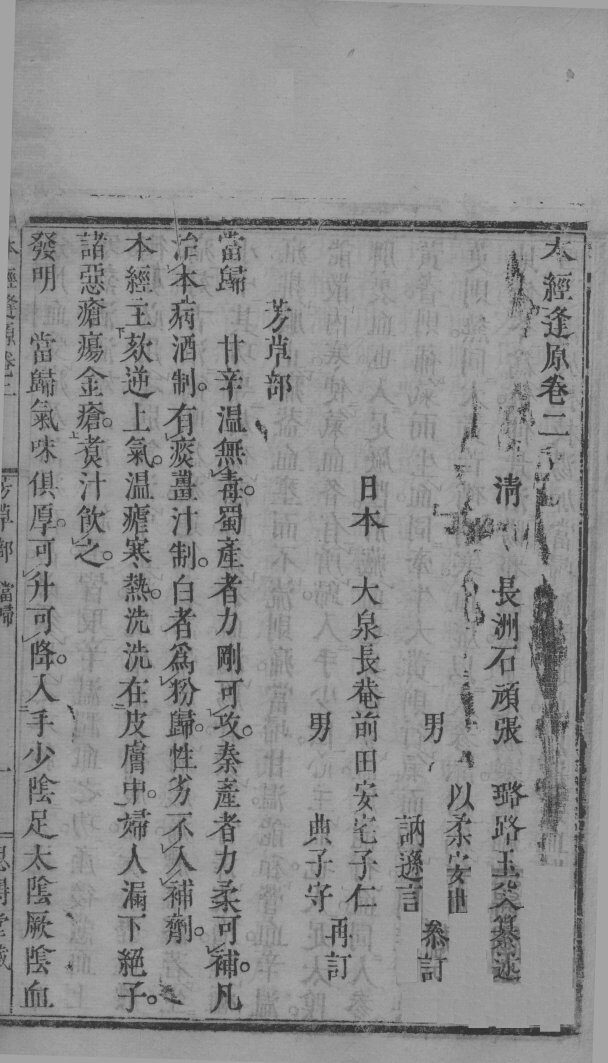 本經逢原卷二
清 長洲石頑張 璐路玉父纂述
男 以柔安世
訥遜言 叅訂
日本 大泉長菴前田安宅子仁
男 典子守 再訂
芳草部
當歸 甘辛溫無毒蜀產者力剛可攻秦產者力柔可補凡
治本病酒制有痰薑汁制白者爲粉歸性劣不入補劑
本經主欬逆上氣溫瘧寒熱洗洗在皮膚中婦人漏下絕子
諸惡瘡瘍金瘡煑汁飲之
發明 當歸氣味俱厚可升可降入手少陰足太陰厥陰血
本經逢原卷二 芳草部 當歸 一 思得堂藏